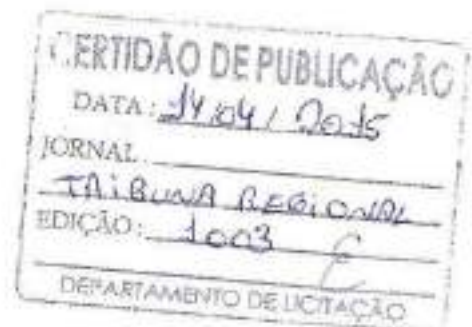 CERTIDÃO DE PUBLICAÇÃO
DATA: 14/04/2015
JORNAL
TRIBUNA REGIONAL
EDIÇÃO: 1003
DEPARTAMENTO DE LICITAÇÃO